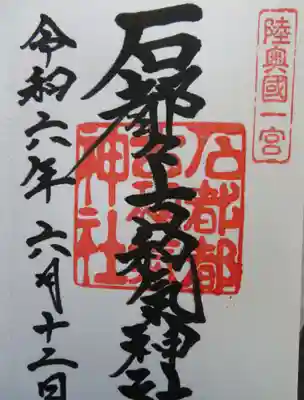 陸奥國一宮
石都々古和気神社
石都都
神社
令和六年六月十二日